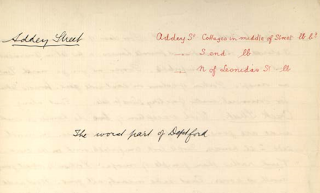 Addey Street
Addey St Cottages in middle of Street lb. b?
— S. end lb
— N of Leonidas St lb
The worst part of Deptford